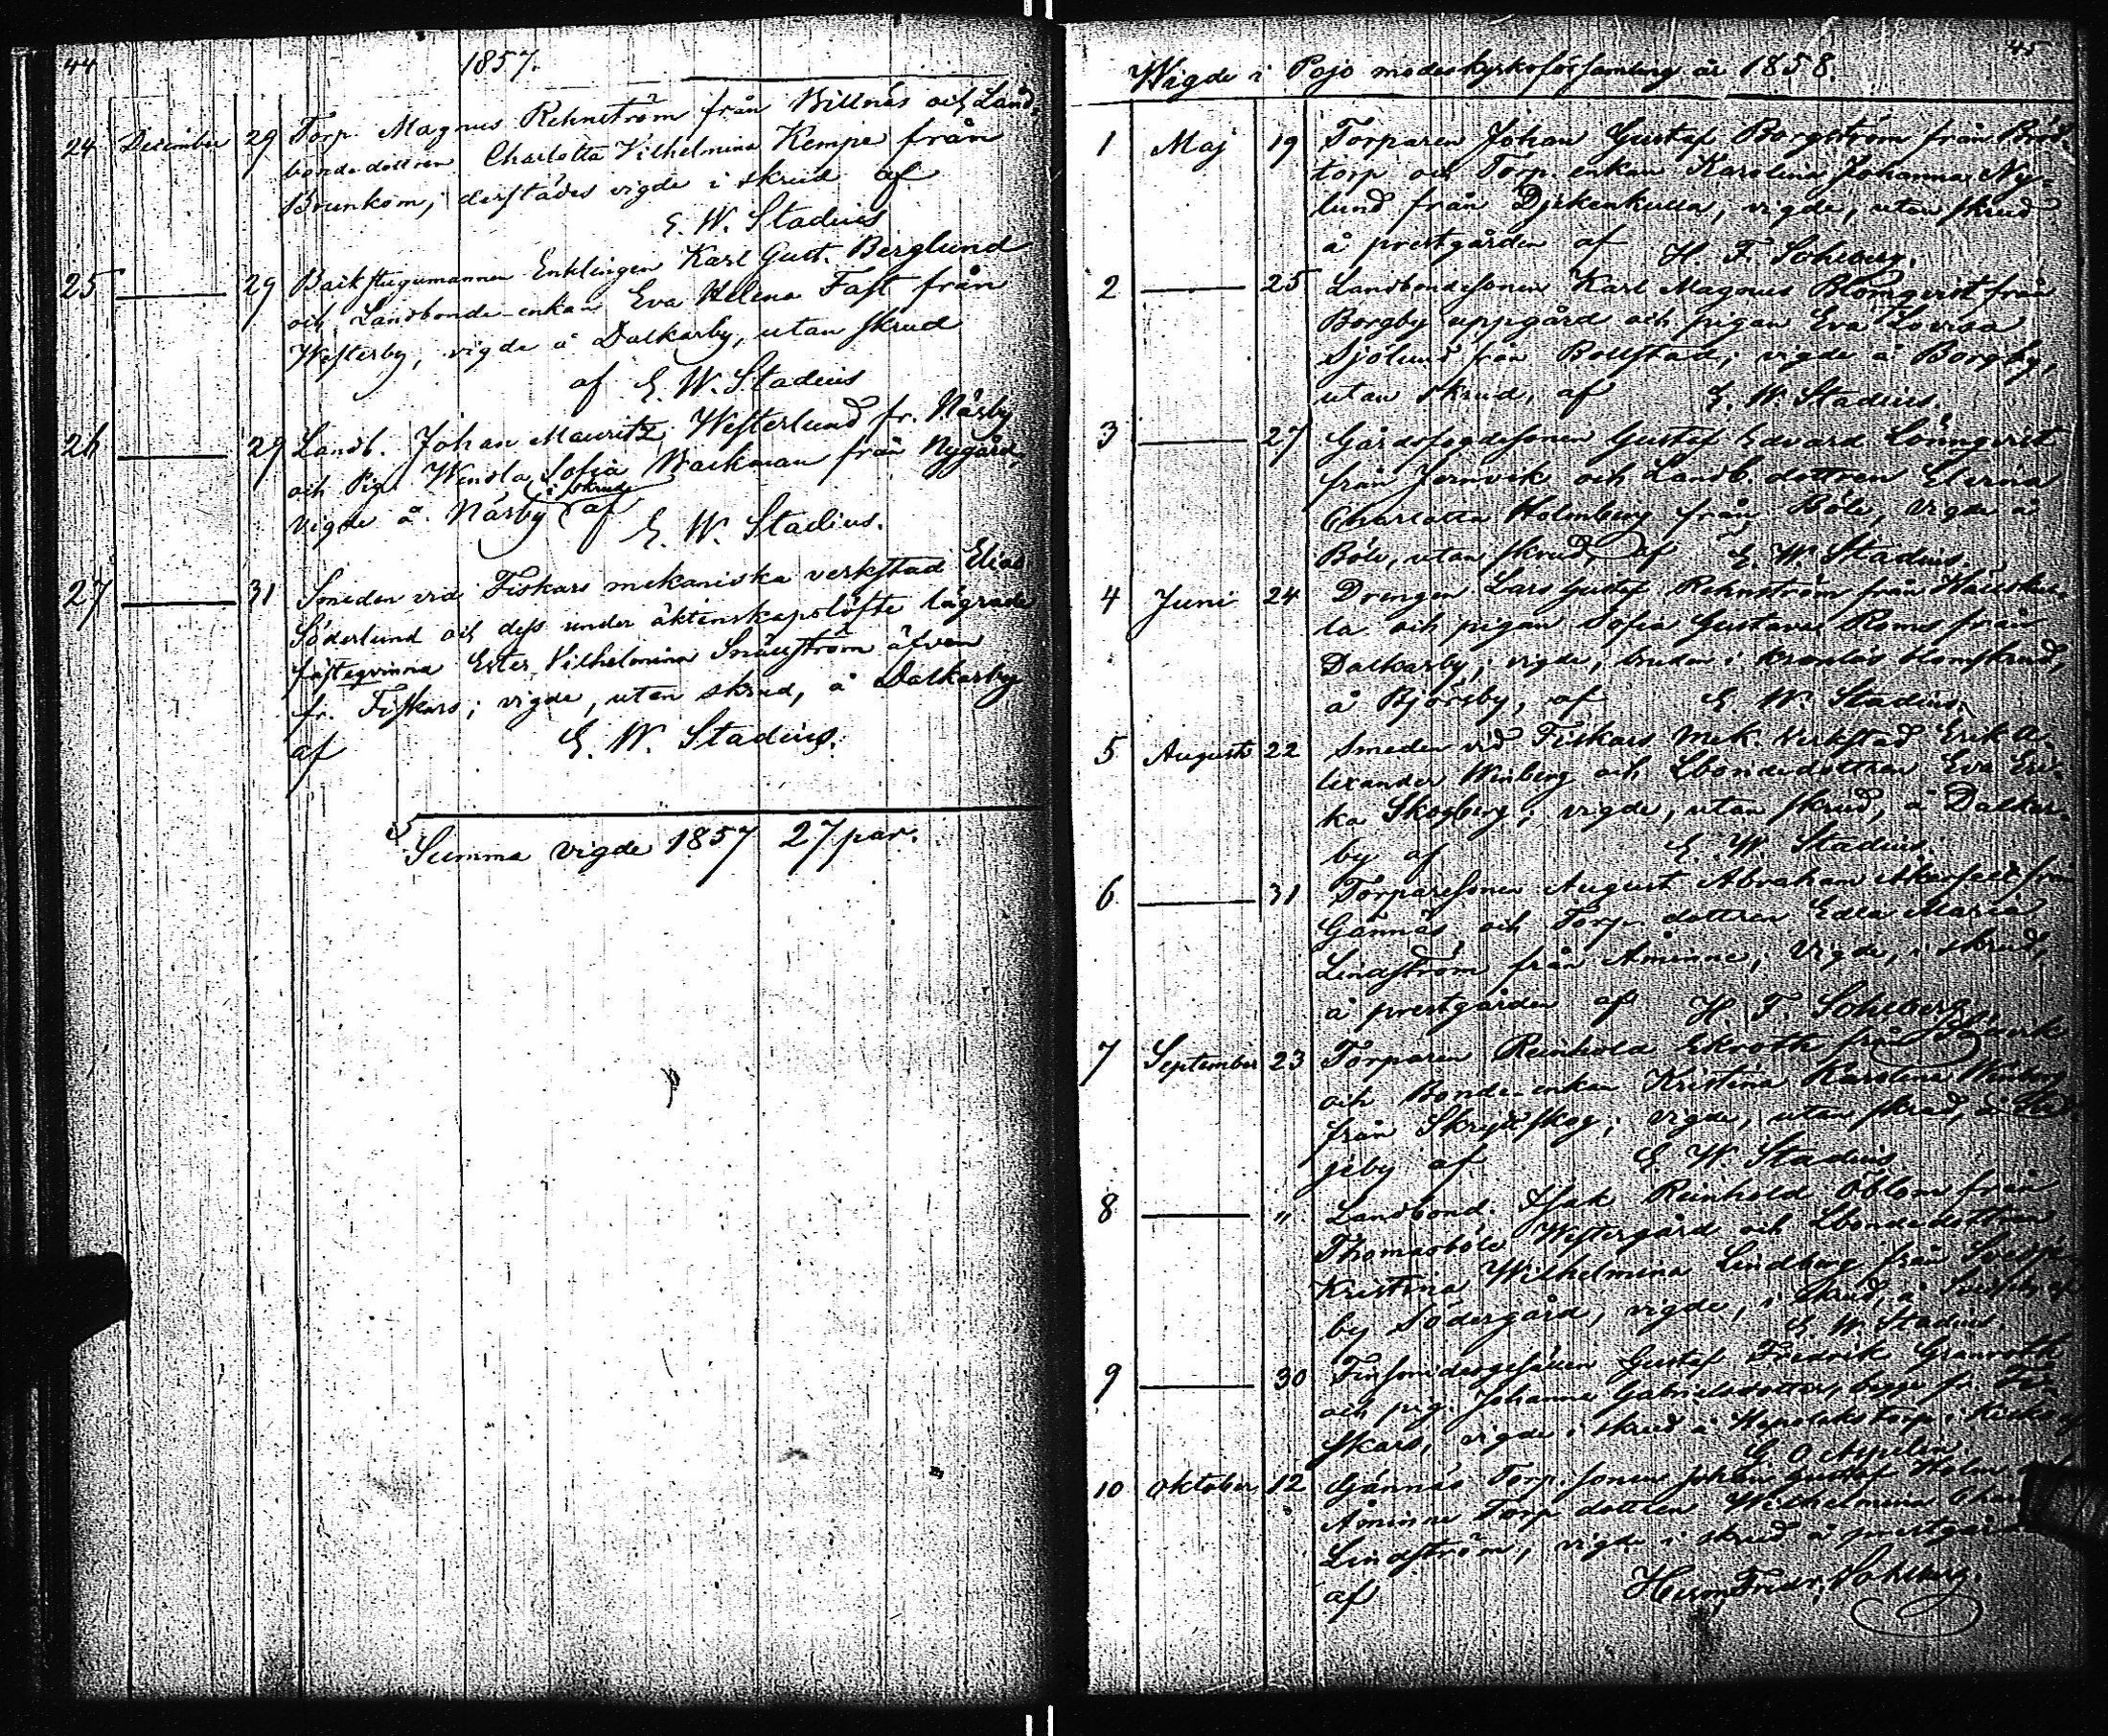 44
1857.
24 December 29 Torp. Magnus Rehnström från Billnäs och Land-
bondedottren Charlotta Vilhelmina Kempe från
Brunkom, derstädes vigde i skrud af
E. W. Stadius
25 — 29 Enklingen Karl Gust. Berglund
och Landbonde-enkan Eva Helena Fast från
Westerby, vigde å Dalkarby, utan skrud
af E. W. Stadius
26 — 29 Landb. Johan Mauritz Westerlund fr. Näsby
och Pig. Wendla Sofia Backman från Nygård,
i skrud
vigde å Näsby af
E. W. Stadius.
27 — 31 Smeden vid Fiskars mekaniska verkstad Elias
Söderlund och dess under äktenskapslöfte lägrade
fästeqvinna Ester Vilhelmina Snällström äfven
fr. Fiskars; vigde, utan skrud, å Dalkarby
af E. W. Stadius.
Summa vigde 1857 27 par.
45
Wigde i Pojo moderkyrkoförsamling år 1858.
1 Maj 19 Torparen Johan Gustaf Borgström från
torp och Torp. enkan Karolina Johanna Ny-
lund från Djekenkulla, vigde, utan skrud
å prestgården af H. F. Sohlberg.
2 — 25 Landbondesonen Karl Magnus Blomqvist från
Borgby uppgård och pigan Eva Lovisa
Sjölund från Bollstad; vigde å Borgby,
utan skrud, af E. W. Stadius.
3 — 27 Gårdsfogdesonen Gustaf Edvard Lönnqvist
från Jernvik och Landb. dottren
Charlotta Holmberg från Böle, vigde å
Böle, utan skrud, af E. W. Stadius.
4 Juni 24 Drengen Lars Gustaf Rehnström från
la och pigan Sofia Gustava Roms från
Dalkarby; vigde, bruden i kronlös skrud,
å Björsby, af E. W. Stadius.
5 Augusti 22 Smeden vid Fiskars Mek. Verkstad Erik A-
lexander Winberg och Lbondedottren Eva Eri-
ka Skogberg; vigde, utan skrud, å Dalkar-
by af E. W. Stadius.
6 — 31 Torparesonen August Abraham från
Gännäs och Torp. dottren Edla Maria
Lindström från Åminne; vigde, i skrud,
å prestgården af H. F. Sohlberg.
7 September 23 Torparen Reinhold Ekroth från
och Bonde-enkan Kristina Karolina Winberg
från Skrydskog; vigde, utan skrud, å
jeby af E. W. Stadius
8 — " Landbond. Isak Reinhold Öblom från
Thomasböle Westergård och Lbondedottren
Kristina Wilhelmina Lindberg från
by Södergård, vigde, i skrud, å
E. W. Stadius.
9 — 30 Finsmidsgesällen Gustaf Fredrik Granroth
och pig. Johanna Gabrielsdotter, begge fr. Fi-
skars, vigde i skrud å torp i
G. O. Aspelin.
10 Oktober 12 Gännäs Torp. sonen Johan Gustaf Holm
Åminne Torp dottren Wilhelmina
Lindström, vigde i skrud å prestgården
af Herm. Fredr. Sohlberg.